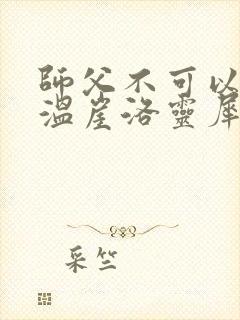 師父不可以
溫崖洛靈犀
采竺